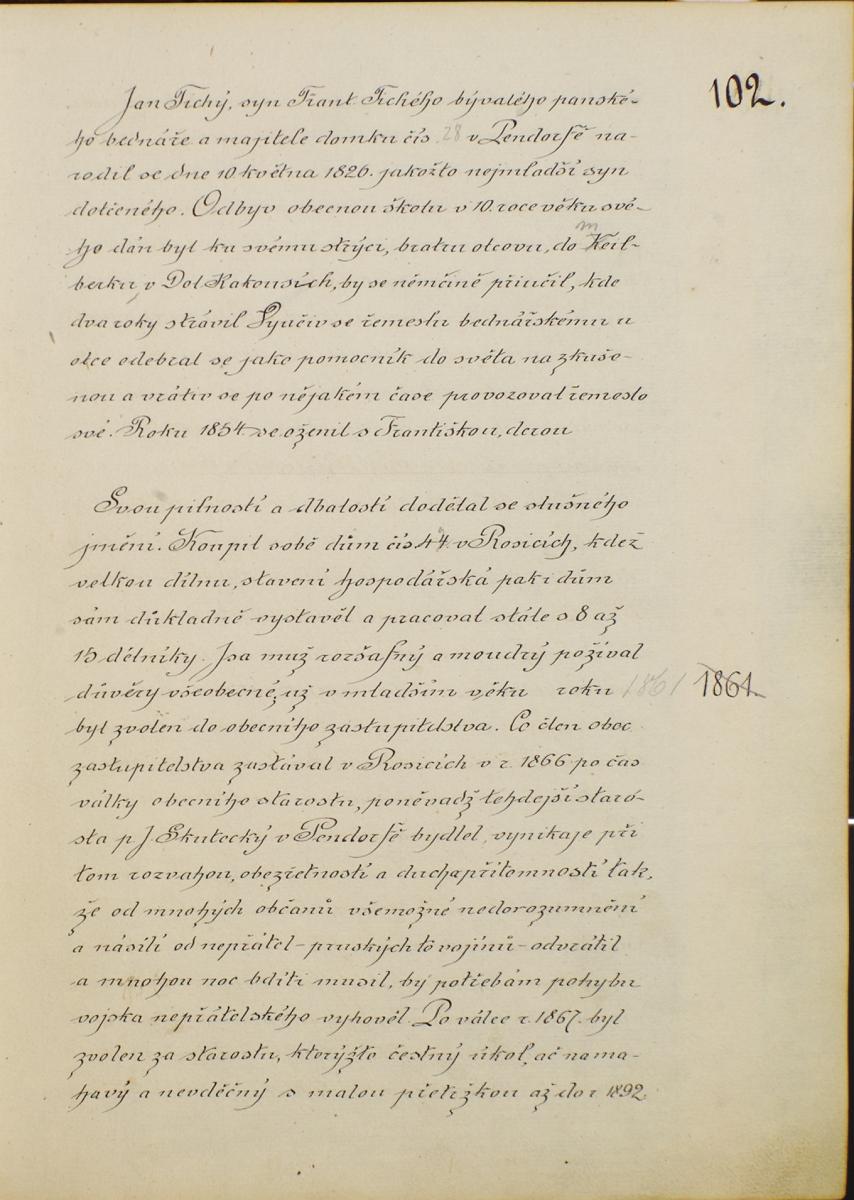 102.
Jan Tichý, syn Frant. Tichého bývalého panské-
ho bednáře a majitele domku čís. 28 v Pendorfě na-
rodil se dne 10 května 1826. jakožto nejmladší syn
dotčeného. Odbyv obecnou školu v 10. roce věku své-
m
ho dán byl ku svému strýci, bratru otcovu, do Keil-
berku v Dol Kakousích, by se němčině přiučil, kde
dva roky strávil Vyučiv se řemeslu bednářskému u
otce odebral se jako pomocník do světa na zkuše-
nou a vrátiv se po nějakém čase provozoval řemeslo
své. Roku 1854. se oženil s Františkou, dcrou
Svou pilností a dbalostí dodělal se slušného
jmění. Koupil sobě dům čís 44. v Rosicích, kdež
velkou dílnu, stavení hospodářská pak i dům
sám důkladně vystavěl a pracoval stále s 8 až
15 dělníky. Jsa muž rozšafný a moudrý požíval
důvěry všeobecné, už v mladším věku roku 1861 1861
byl zvolen do obecního zastupitelstva. Co člen obec
zastupitelstva zastával v Rosicích v r. 1866 po čas
války obecního starostu, poněvadž tehdejší staro-
sta p. J Skutecký v Pendorfě bydlel, vynikaje při
tom rozvahou, obezřetností a duchapřítomností tak,
že od mnohých občanů všemožné nedorozumnění
a násilí od nepřátel - pruských to vojínů - odvrátil
a mnohou noc bdíti musil, by potřebám pohybu
vojska nepřátelského vyhověl. Po válce r. 1867. byl
zvolen za starostu, kterýžto čestný úkol, ač nama-
havý a nevděčný s malou přetržkou až do r 1892.